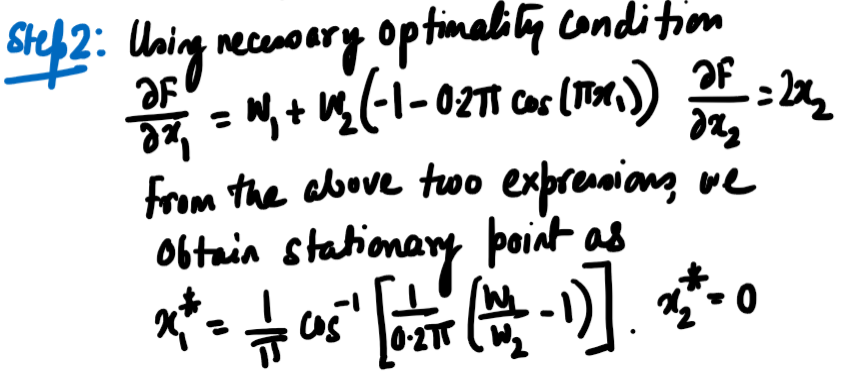 Step2: Using necessary optimality condition
∂F/∂x₁ = W₁ + W₂(-1-0.2π cos(πx₁)) ∂F/∂x₂ = 2x₂
From the above two expressions, we
obtain stationary point as
x₁* = 1/π cos⁻¹ [1/0.2π (W₁/W₂ - 1)]. x₂* = 0